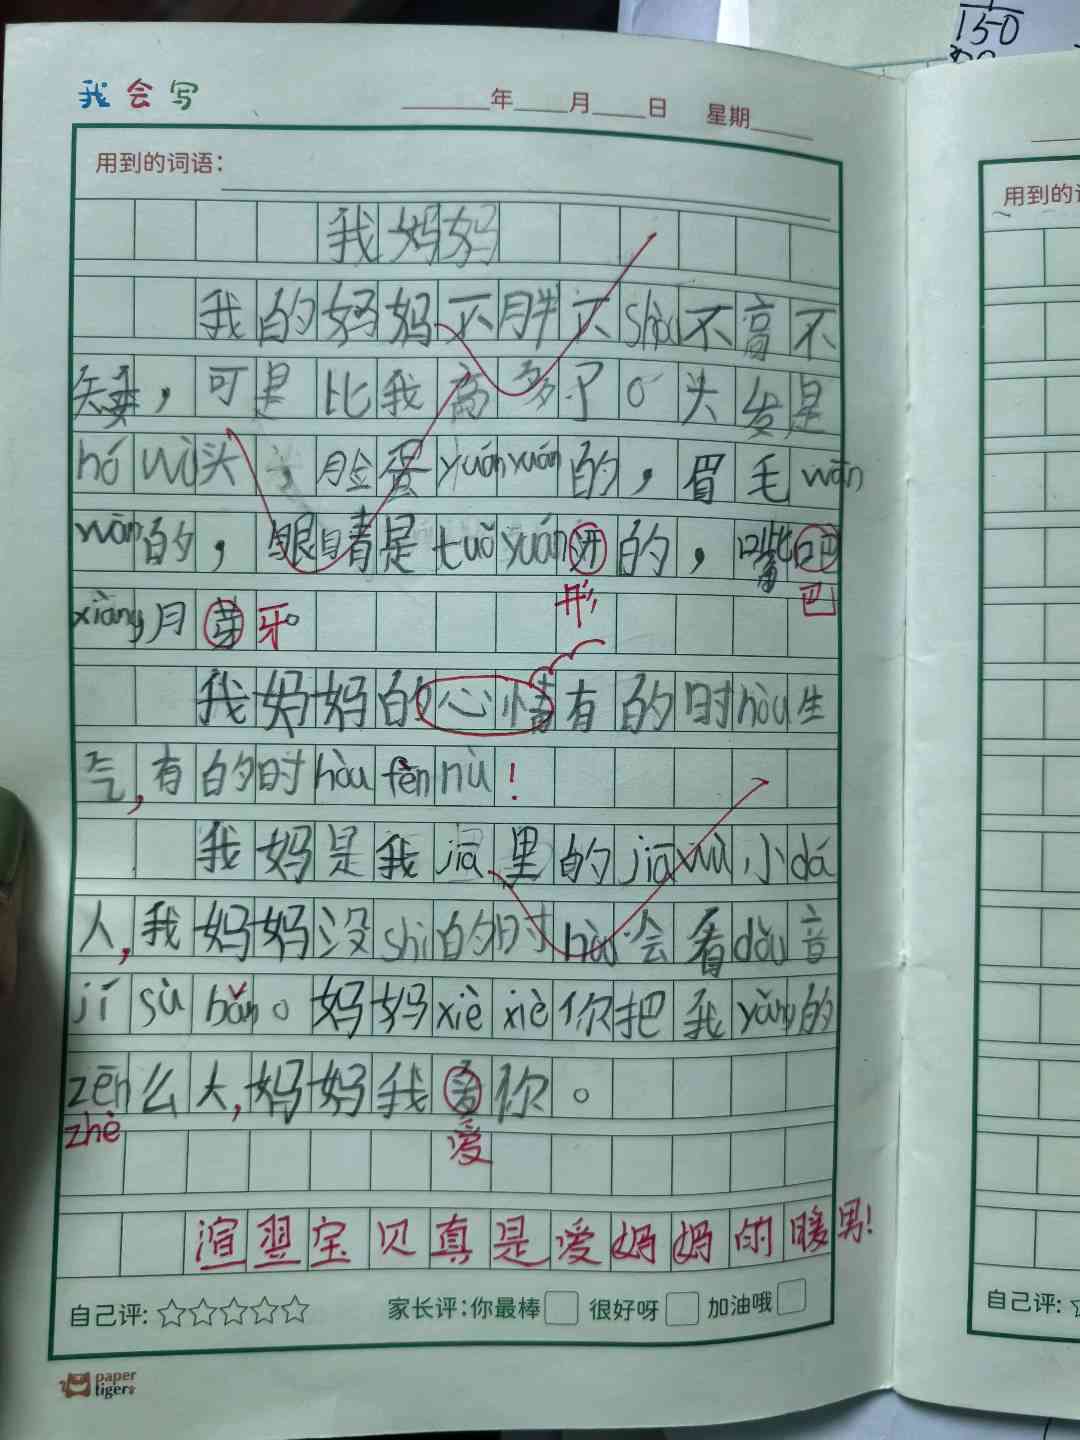 150
我会写
年 月 日 星期
用到的词语：
用到的
我妈妈
我的妈妈不胖不shòu不高不
矮，可是比我高多了。头发是
hó wù头，脸蛋yuányuán的，眉毛wān
wān的，眼睛是tuǒyuán形的，嘴吧
形 巴
xiàng月芽牙。
我妈妈的心情有的时hòu生
气，有的时hòu fèn nù！
我妈是我jiā里的jiā wù小dá
人，我妈妈没shì的时hòu会看dǒu音
jí sù bǎn。妈妈xiè xiè你把我yǎng的
zēn么大，妈妈我爱你。
zhè 爱
渲翌宝贝真是爱妈妈的暖男！
自己评：☆☆☆☆☆ 家长评：你最棒□ 很好呀□ 加油哦□
自己评：
paper tiger